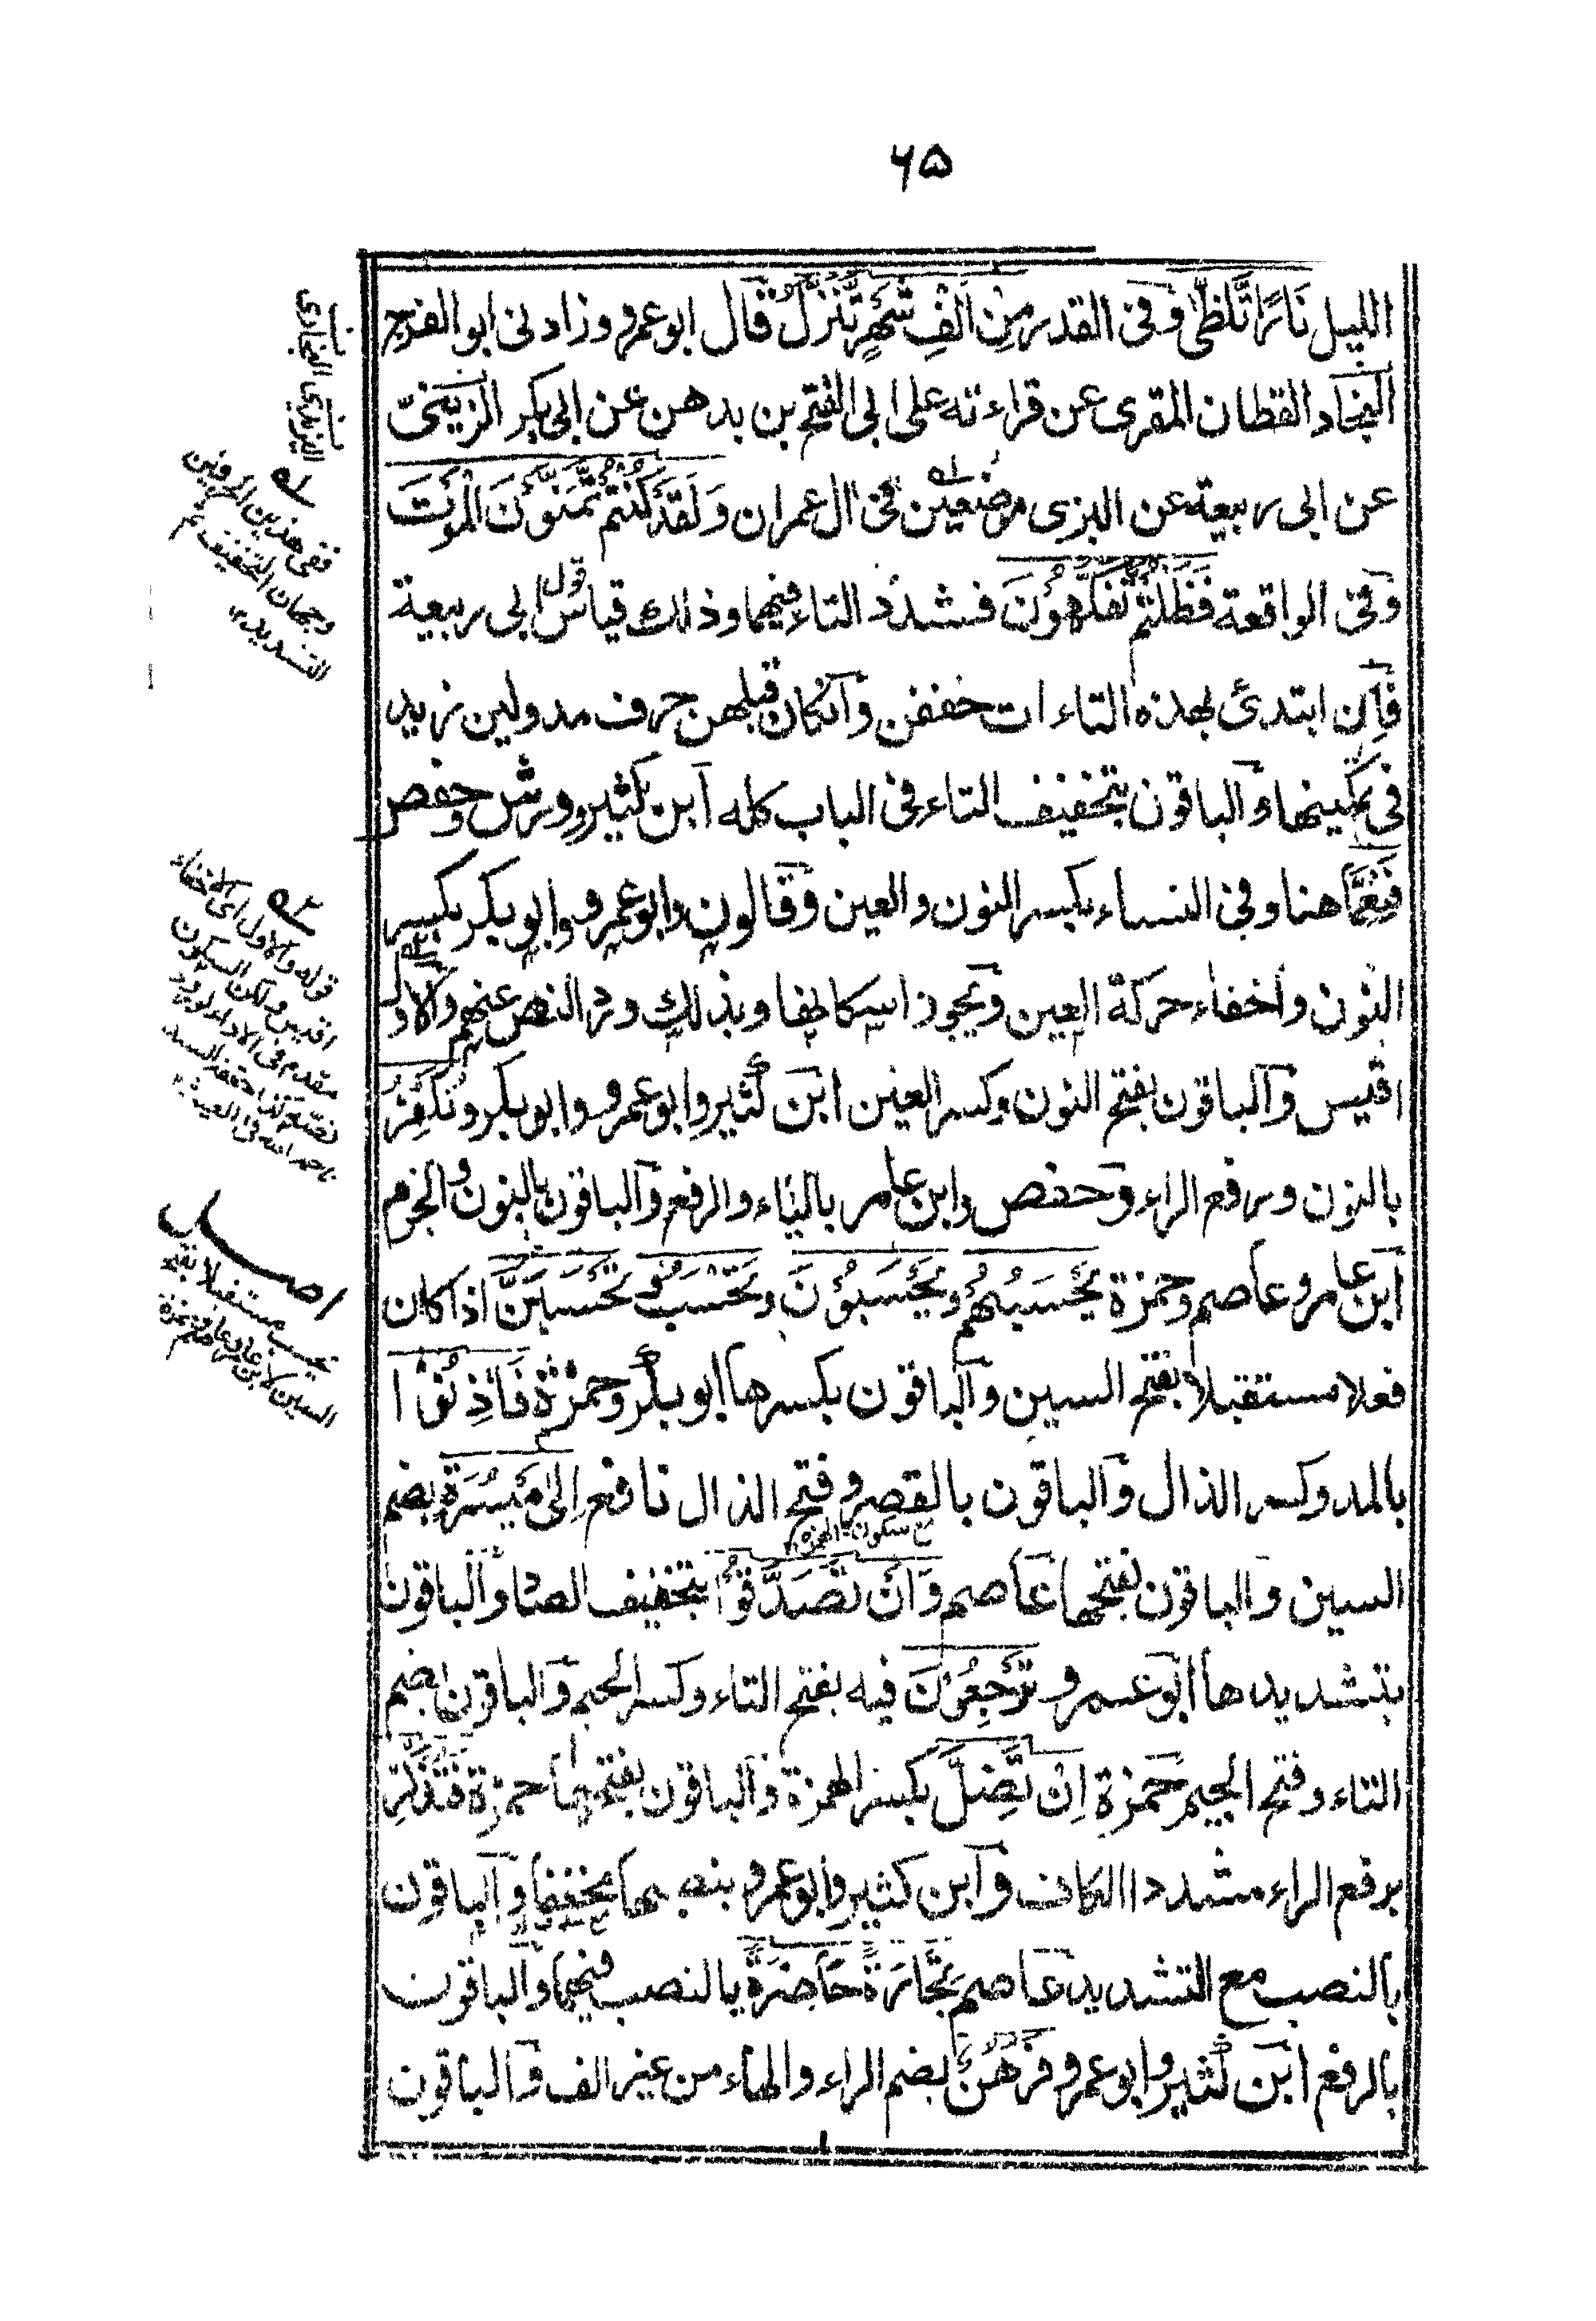 ۶۵
الليل نَارًا تَّلَظّٰى وفى القدر مِنْ اَلْفِ شَهْرٍ تَّنَزَّلُ قال ابو عمرو وزادنى ابو الفرج
النجاد القطان المقرى عن قراءته على ابى الفتح بن بدهن عن ابى بكر الزينبىّ
عن ابى ربيعة عن البزى موضعين فى ال عمران وَلَقَدْ كُنْتُمْ تَّمَنَّوْنَ الْمَوْتَ
وفى الواقعة فَظَلْتُمْ تَّفَكَّهُوْنَ فشدد التاء فيهما وذلك قياس قول ابى ربيعة
فان ابتدئ بهذه التاءات خففن وان كان قبلهن حرف مد ولين زيد
فى تمكينها والباقون بتخفيف التاء فى الباب كله ابن كثير وورش وحفص
فَنِعِمَّا هنا وفى النساء بكسر النون والعين وقالون وابو عمرو وابو بكر بكسر
النون واخفاء حركة العين ويجوز اسكانها وبذلك ورد النص عنهم والاول
اقيس والباقون بفتح النون وكسر العين ابن كثير وابو عمرو وابو بكر ونُكَفِّرُ
بالنون ورفع الراء وحفص وابن عامر بالياء والرفع والباقون بالنون والجزم
ابن عامر وعاصم وحمزة يَحْسَبُهُمُ ويَحْسَبُوْنَ وتَحْسَبُ وتَحْسَبَنَّ اذا كان
فعلا مستقبلا بفتح السين والباقون بكسرها ابو بكر وحمزة فَاٰذِنُوْا
بالمد وكسر الذال والباقون بالقصر وفتح الذال نافع اِلٰى مَيْسُرَةٍ بضم
مع سكون الهمزة
السين والباقون بفتحها عاصم وَاَنْ تَصَدَّقُوْا بتخفيف الصاد والباقون
بتشديدها ابو عمرو تَرْجِعُوْنَ فيه بفتح التاء وكسر الجيم والباقون بضم
التاء وفتح الجيم حمزة اِنْ تَضِلَّ بكسر الهمزة والباقون بفتحها حمزة فَتُذَكِّرُ
برفع الراء مشددا الكاف وابن كثير وابو عمرو بنصبها مخففا والباقون
بالنصب مع التشديد عاصم تِجَارَةً حَاضِرَةً بالنصب فيهما والباقون
بالرفع ابن كثير وابو عمرو فَرُهُنٌ بضم الراء والهاء من غير الف والباقون
ففى هذين الحرفين
وجهان التخفيف ثم
التشديد
قوله والاول اى الاخفاء
اقيس ولكن السكون